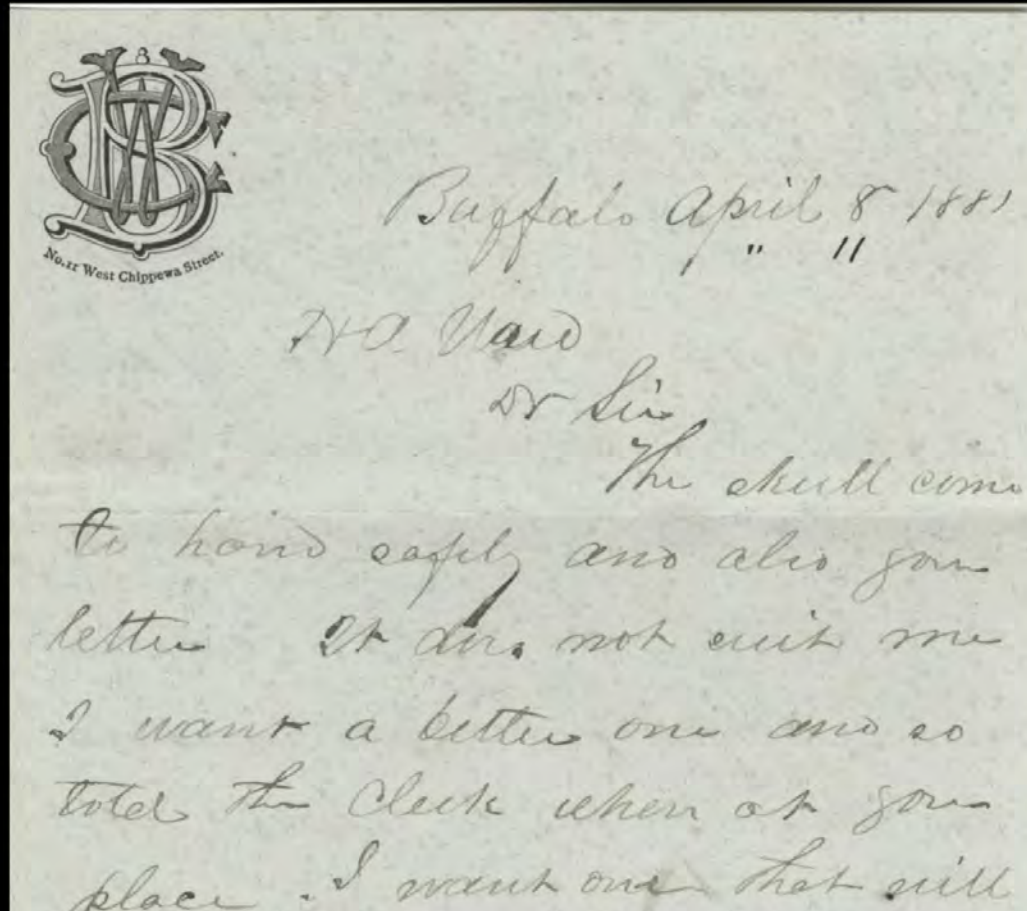 No. 11 West Chippewa Street.
Buffalo April 8 1881
" "
H A Ward
Dr Sir
The skull come
to hand safely and also your
letter It does not suit me
I want a better one and so
told the Clerk when at your
place. I want one that will